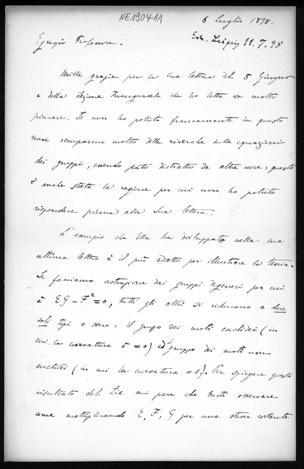 NE190411
6 Luglio 1898.
Erh. Leipzig 11.7.98
Egregio Professore.
Mille grazie per la sua lettera del 5 Giugno
e della che ho letto con molto
piacere. Io non ho potuto francamente in questo
mese occuparmi molto delle ricerche sulle equazioni
dei gruppi, essendo stato distratto da altre cure; questa
è anche stata la ragione per cui non ho potuto
rispondere prima alla Sua lettera.
L'esempio che Ella ha sviluppato nella sua
ultima lettera è il più adatto per illustrare la teoria.
Se facciamo astrazione dai gruppi degeneri per cui
è EG - F² = 0, tutti gli altri si riducono a due
soli tipi e sono: il gruppo dei moti euclidei (in
cui la curvatura è = 0) e il gruppo dei moti non
euclidei (in cui la curvatura = 1). Per spiegare questo
risultato del Lie mi pare che basti osservare
come moltiplicando E, F, G per una stessa costante